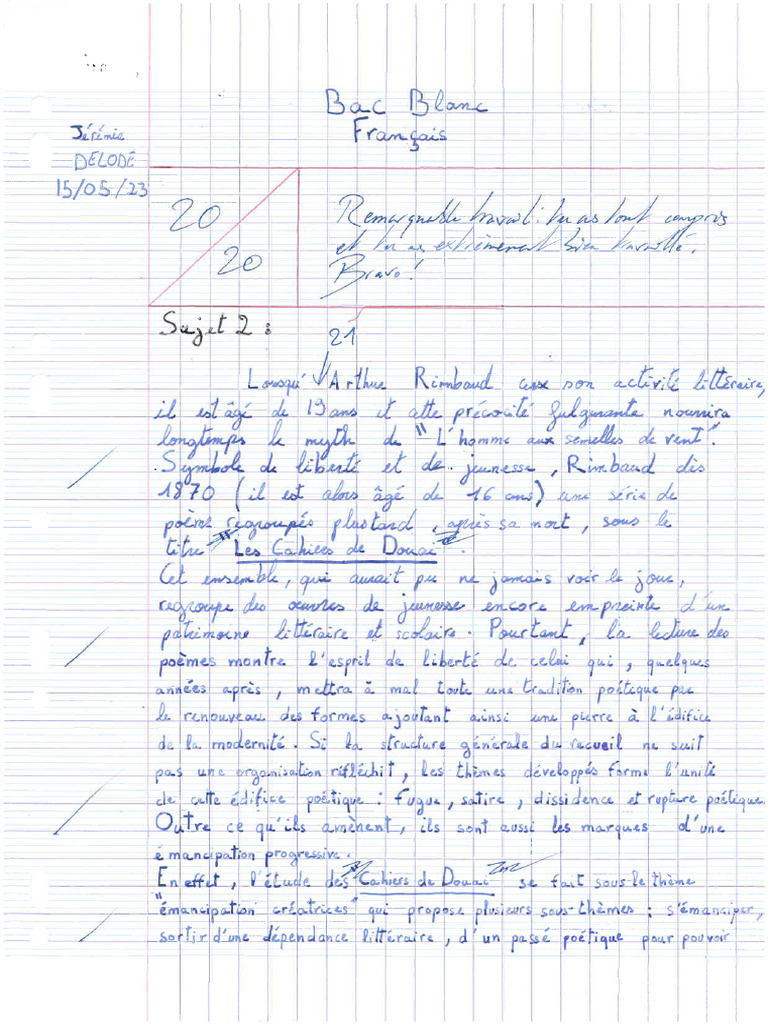 Bac Blanc
Français
Jérémie
DELODE
15/05/23
20
20
Remarquable travail : tu as tout compris
et tu as extrêmement bien travaillé.
Bravo !
Sujet 2 :
21
Lorsqu' Arthur Rimbaud cesse son activité littéraire,
il est âgé de 19 ans et cette précocité fulgurante nourrira
longtemps le myth de "L'homme aux semelles de vent".
Symbole de liberté et de jeunesse, Rimbaud dès
1870 (il est alors âgé de 16 ans) une série de
poème regroupés plustard, après sa mort, sous le
titre "Les Cahiers de Douai".
Cet ensemble, qui aurait pu ne jamais voir le jour,
regroupe des œuvres de jeunesse encore empreinte d'un
patrimoine littéraire et scolaire. Pourtant, la lecture des
poèmes montre l'esprit de liberté de celui qui, quelques
années après, mettra à mal toute une tradition poétique par
le renouveau des formes ajoutant ainsi une pierre à l'édifice
de la modernité. Si la structure générale du recueil ne suit
pas une organisation réfléchit, les thèmes développés forme l'unité
de cette édifice poétique : fugue, satire, dissidence et rupture poétique.
Outre ce qu'ils amènent, ils sont aussi les marques d'une
émancipation progressive.
En effet, l'étude des Cahiers de Douai se fait sous le thème
"émancipation créatrices" qui propose plusieurs sous-thèmes : s'émanciper,
sortir d'une dépendance littéraire, d'un passé poétique pour pouvoir